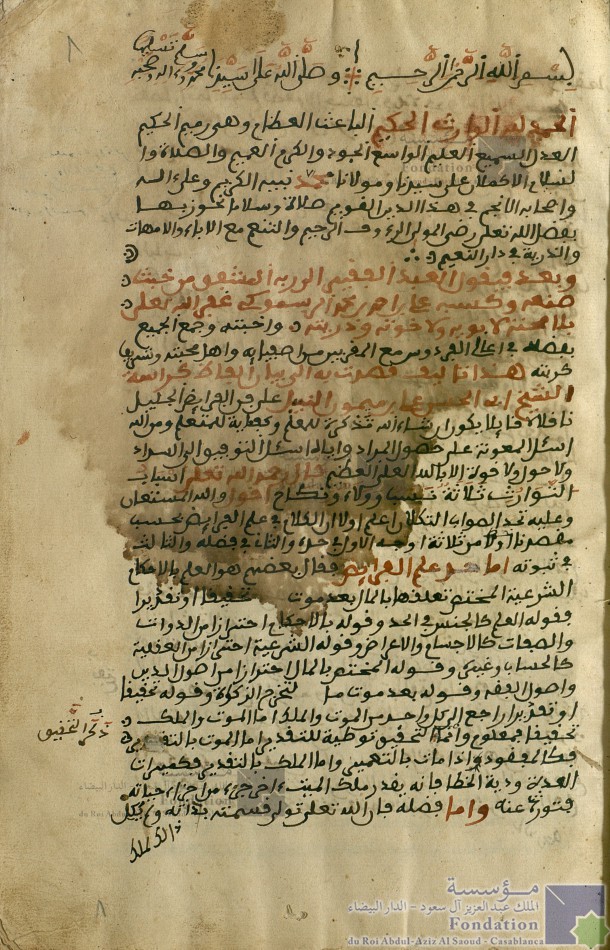 بسم الله الرحمن الرحيم وصلى الله على سيدنا محمد وءاله وصحبه وسلم تسليما
الحمد لله الوارث الحكيم الباعث العظام وهي رميم الحكيم
العدل السميع العليم الواسع الجود والكرم العميم والصلاة وا
لسلام الاكملان على سيدنا ومولانا محمد نبيه الكريم وعلى ءاله
واصحابه الانجم في هذا الدين القويم صلاة وسلاما نحوز بهما
بفضل الله تعلى رضى المولى الرءوف الرحيم والتنعم مع الاباء والامهات
والذرية في دار النعيم
وبعد فيقول العبد الفقير الى ربه المشفق من خبث
صنعه وكسبه على بن احمد بن محمد الرسموكي غفر الله تعلى
بلا محنة لابويه ولاخوته وذريته واحبته وجمع الجميع
بفضله في اعالي الفردوس مع المقربين من اصفيائه واهل محبته
قربته هذا تاليف قصدت به الى بيان الفاظ كراسة
الشيخ ابى الحسن على بن ميمون في علم الفرائض الجليل
ان شاء الله تذكرة للمعلم وتبصرة للمتعلم ومن الله
اسئل المعونة على حصول المراد واياه اسئل التوفيق الى السداد
ولا حول ولا قوة الا بالله العلي العظيم قال رحمه الله تعلى اسباب
التوارث ثلاثة نسب وولاء ونكاح اقول والله المستعان
وعليه تجد الصواب التكلان اعلم اولا ان الكلام في علم الفرائض بحسب
مقصدنا اولا من ثلاثة اوجه الاول في حده والثانى في فضله والثالث
في ثبوته اما حد علم الفرائض فقال بعضهم هو العلم بالاحكام
الشرعية المختص تعلقها بالمال بعد موت تحقيقا او تقديرا
فقوله العلم كالجنس في الحد وقوله بالاحكام احترازا من الذوات
والصفات كالاجسام والاعراض وقوله الشرعية احترازا من العقلية
كالحساب وغيره وقوله المختص بالمال احترازا من اصول الدين
واصول الفقه وقوله بعد موت مالكه لتخرج الزكوة وقوله تحقيقا
او تقديرا راجع الى كل واحد من الموت والملك اما الموت والملك
تحقيقا فمعلوم وانما التحقيق توطية للتقدير اما الموت بالتقدير
فكالمفقود واذا مات بالتعمير واما الملك بالتقدير
دية الخطا فانه يقدر ملك الميت اخر جزء من اجزاء حياته
فتورث عنه واما فضله فان الله تعلى تولى قسمته بذاته ولم يكل
ذلك لملك
ذكر التحقيق
مؤسسة
الملك عبدالعزيز آل سعود - الدار البيضاء
Fondation
du Roi Abdul-Aziz Al Saoud - Casablanca